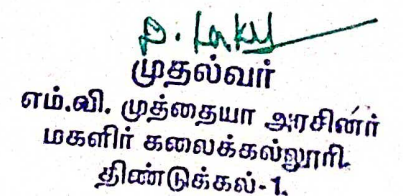 முதல்வர்
எம்.வி. முத்தையா அரசினர்
மகளிர் கலைக்கல்லூரி
திண்டுக்கல்-1.